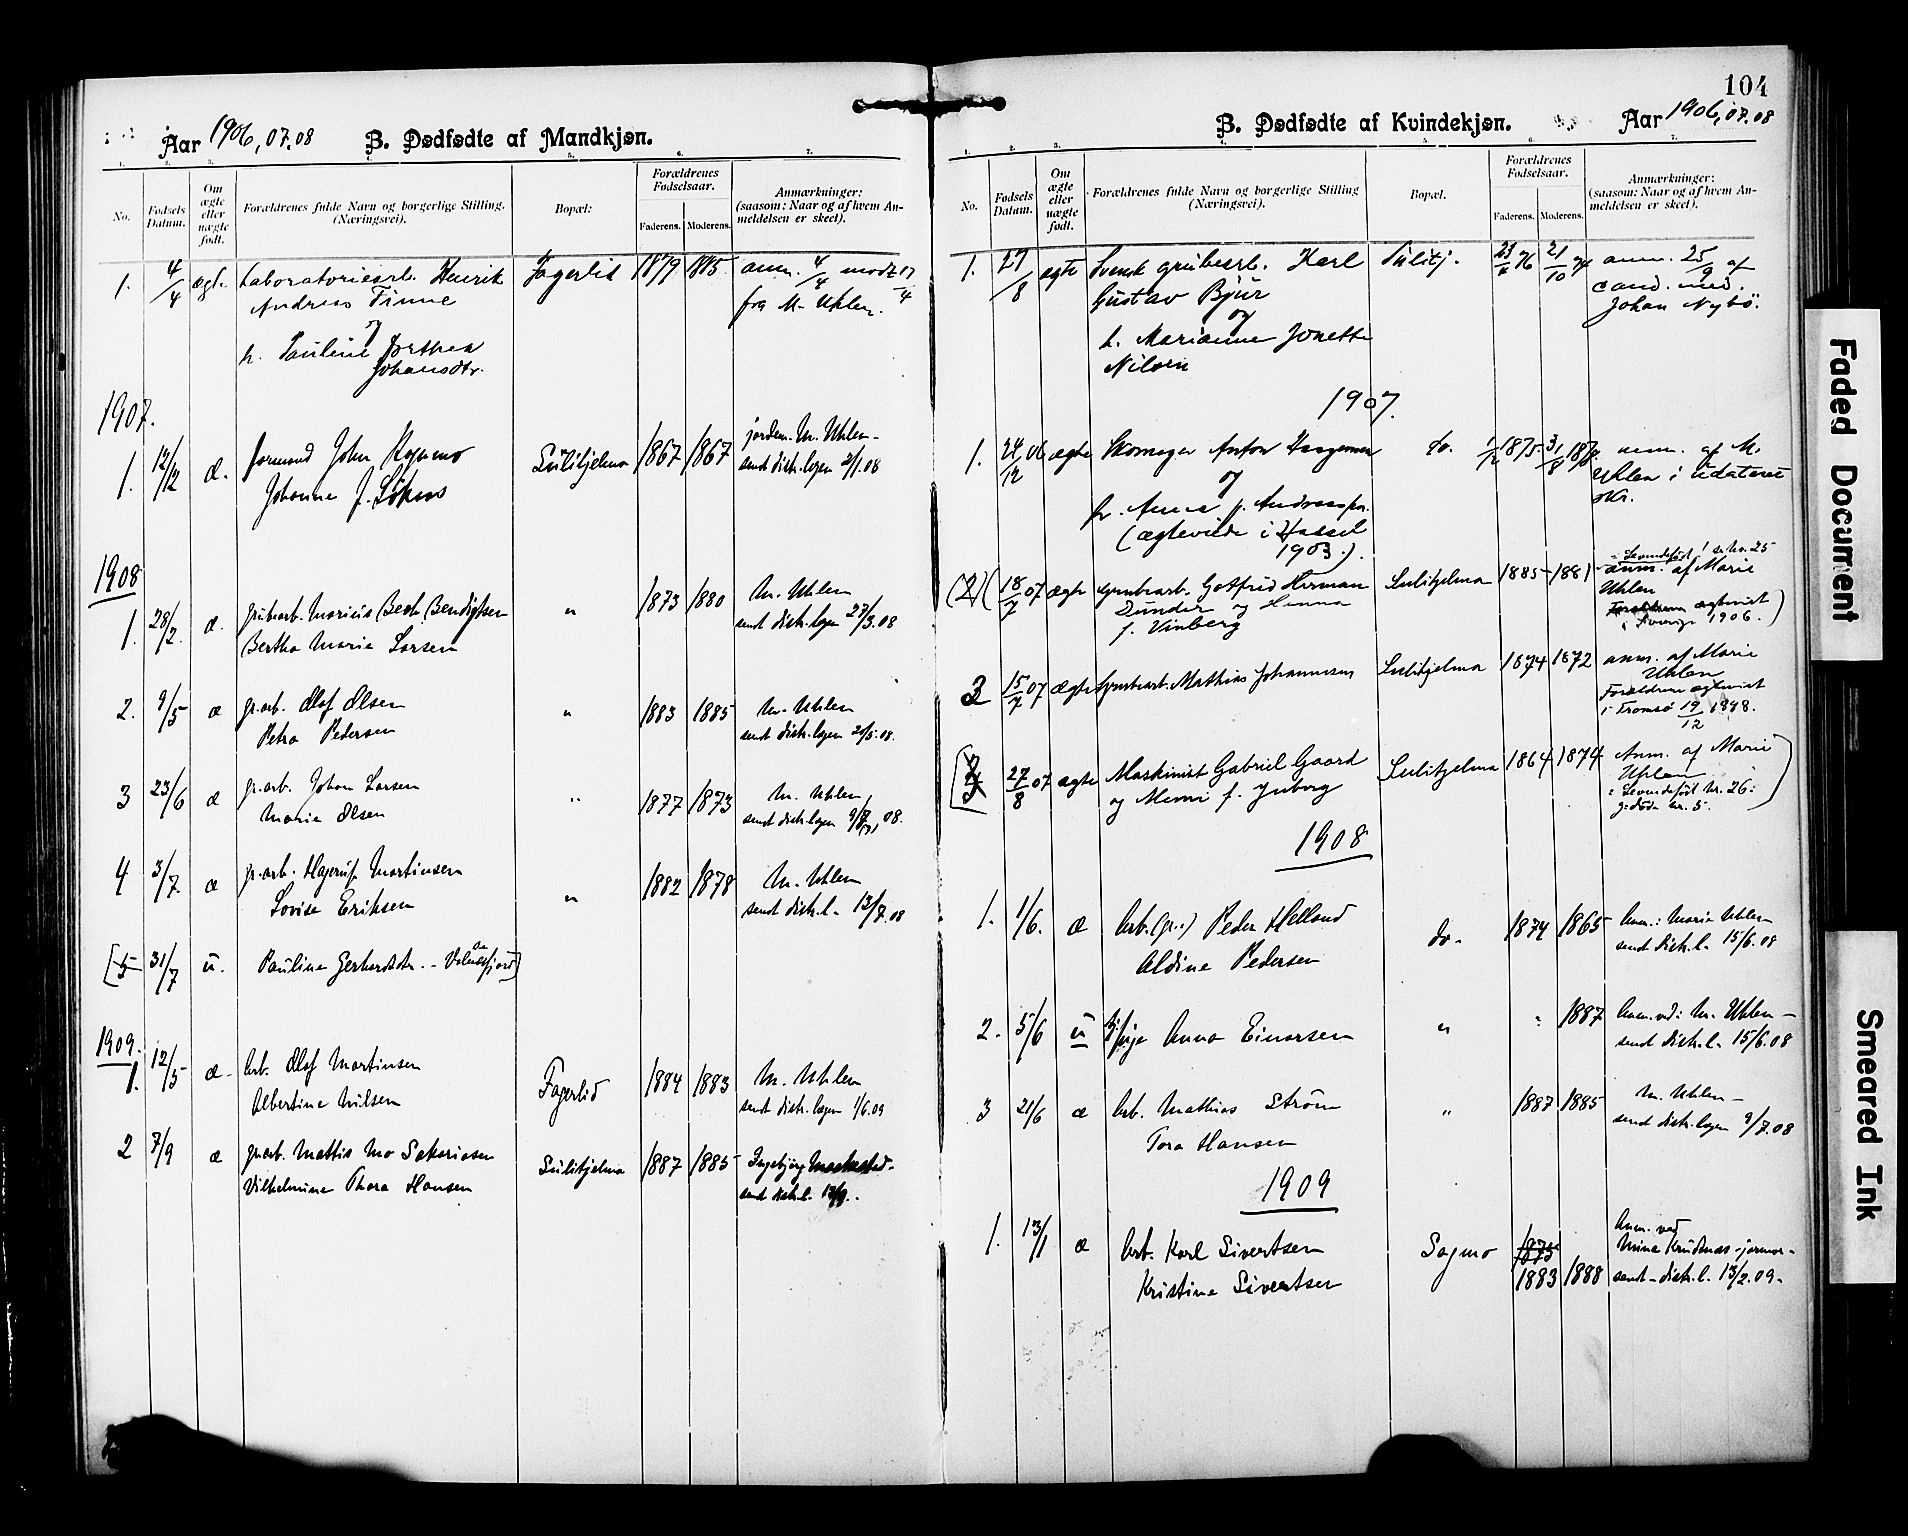 104
Aar 1906, 07. 08
B. Dødfødte af Mandkjøn.
1. 2. 3. 5. 6. 7.
No.
Fødsels Datum.
Om ægte eller uægte født.
Forældrenes fulde Navn og borgerlige Stilling. (Næringsvei).
Bopæl:
Forældrenes Fødselsaar.
Faderens. Moderens.
Anmærkninger: (saasom: Naar og af hvem Anmeldelsen er skeet).
1. 4/4 ægte Laboratoriearb. Henrik Fagerlid 1879 1885 anm. 4/4 modt 17/4
Andreas Finne fra M. Uhlen.
og
h. Pauline Dorthea
Johansdtr.
1907.
1. 12/12 æ. formand John Rognmo Sulitjelma 1867 1867 jordem. M. Uhlen -
Johanne f. sendt distr. lægen 2/1.08
1908
1. 28/2. æ. grubearb. Marius Berh. Bendigtsen " 1873 1880 M. Uhlen
Bertha Marie Larsen sendt distr. lægen 27/3.08
2. 9/5 æ gr. arb. Olaf Olsen " 1883 1885 M. Uhlen
Petra Pedersen sendt distr. lægen 20/5.08.
3 23/6 æ gr. arb. Johan Larsen " 1877 1873 M. Uhlen
Marie Olsen sendt distr. lægen 9/7 08.
4 3/7. æ gr. arb. Hagerup Martinsen " 1882 1878 M. Uhlen
Lovise Eriksen sendt distr. l. 13/7.08
[5 31/7 u. Pauline Gerhardsdtr. - Valnesfjord]
1909.
1. 12/5 æ - Arb. Olaf Martinsen Fagerlid 1884 1883 M. Uhlen
Albertine Nilsen sendt distr. lægen 1/6.09
2 7/9 æ gr. arb. Mattis Mo Sakariasen Sulitjelma 1887 1885 Ingebjørg
Vilhelmine Thora Hansen sendt distr. l. 13/9.
B. Dødfødte af Kvindekjøn.
Aar 1906, 07. 08
1. 2. 3. 4. 5. 6. 7.
No.
Fødsels Datum.
Om ægte eller uægte født.
Forældrenes fulde Navn og borgerlige Stilling (Næringsvei).
Bopæl.
Forældrenes Fødselsaar.
Faderens. Moderens.
Anmærkninger: (saasom: Naar og af hvem Anmeldelsen er skeet).
1. 27/8 ægte Svensk grubearb. Karl Sulitj. 76 21/10 74 anm. 25/9 af
Gustav Bjur cand. med.
og Johan Nybø.
h. Marianne Jonette
Nilsen
1907.
1. 24/12 06 ægte Skomager Anton do. 1875 31/8 anm. af M.
og Uhlen i udateret
h. Anna f. Andreas skr.
(ægteviede i Hassel
1903.).
(2) (18/7 07 ægte grubearb. Gotfrid Herman Sulitjelma 1885 1881 Levendefødt! se No. 25
Dunder og Hanna anm. af Marie
f. Vinberg Uhlen
Forældrene ægteviet
i Sverige 1906.)
2 15/7 07 ægte grubearb. Mathias Johannesen Sulitjelma 1874 1872 anm. af Marie
Uhlen
Forældrene ægteviet
i Tromsø 19/12 1898.
[3 27/8 07 ægte Maskinist Gabriel Gaard Sulitjelma 1864 1874 Anm. af Marie
og Memi f. Inborg Uhlen
: Levendefødt Nr. 26:
døde nr. 5.
1908
1. 1/6. æ Arb. (gr.) Peder Helland do. 1874 1865 Anm.: Maria Uhlen
Aldine Pedersen sendt distr. l. 15/6.08
2. 5/6 u pige Anna Einarsen " : 1887 Anm. ved: M. Uhlen -
sendt distr. l. 15/6.08
3 21/6 æ Arb. Mathias Strøm " 1887 1885 M. Uhlen -
Tora Hansen sendt distr. lægen 9/7.08
1909
1. 13/1 æ Arb. Karl Sivertsen Sagmo 1875 Anm. ved
Kristine Sivertsen 1883 1888 jormor -
sendt - distr. l. 13/2.09 -
Faded Document
Smeared Ink